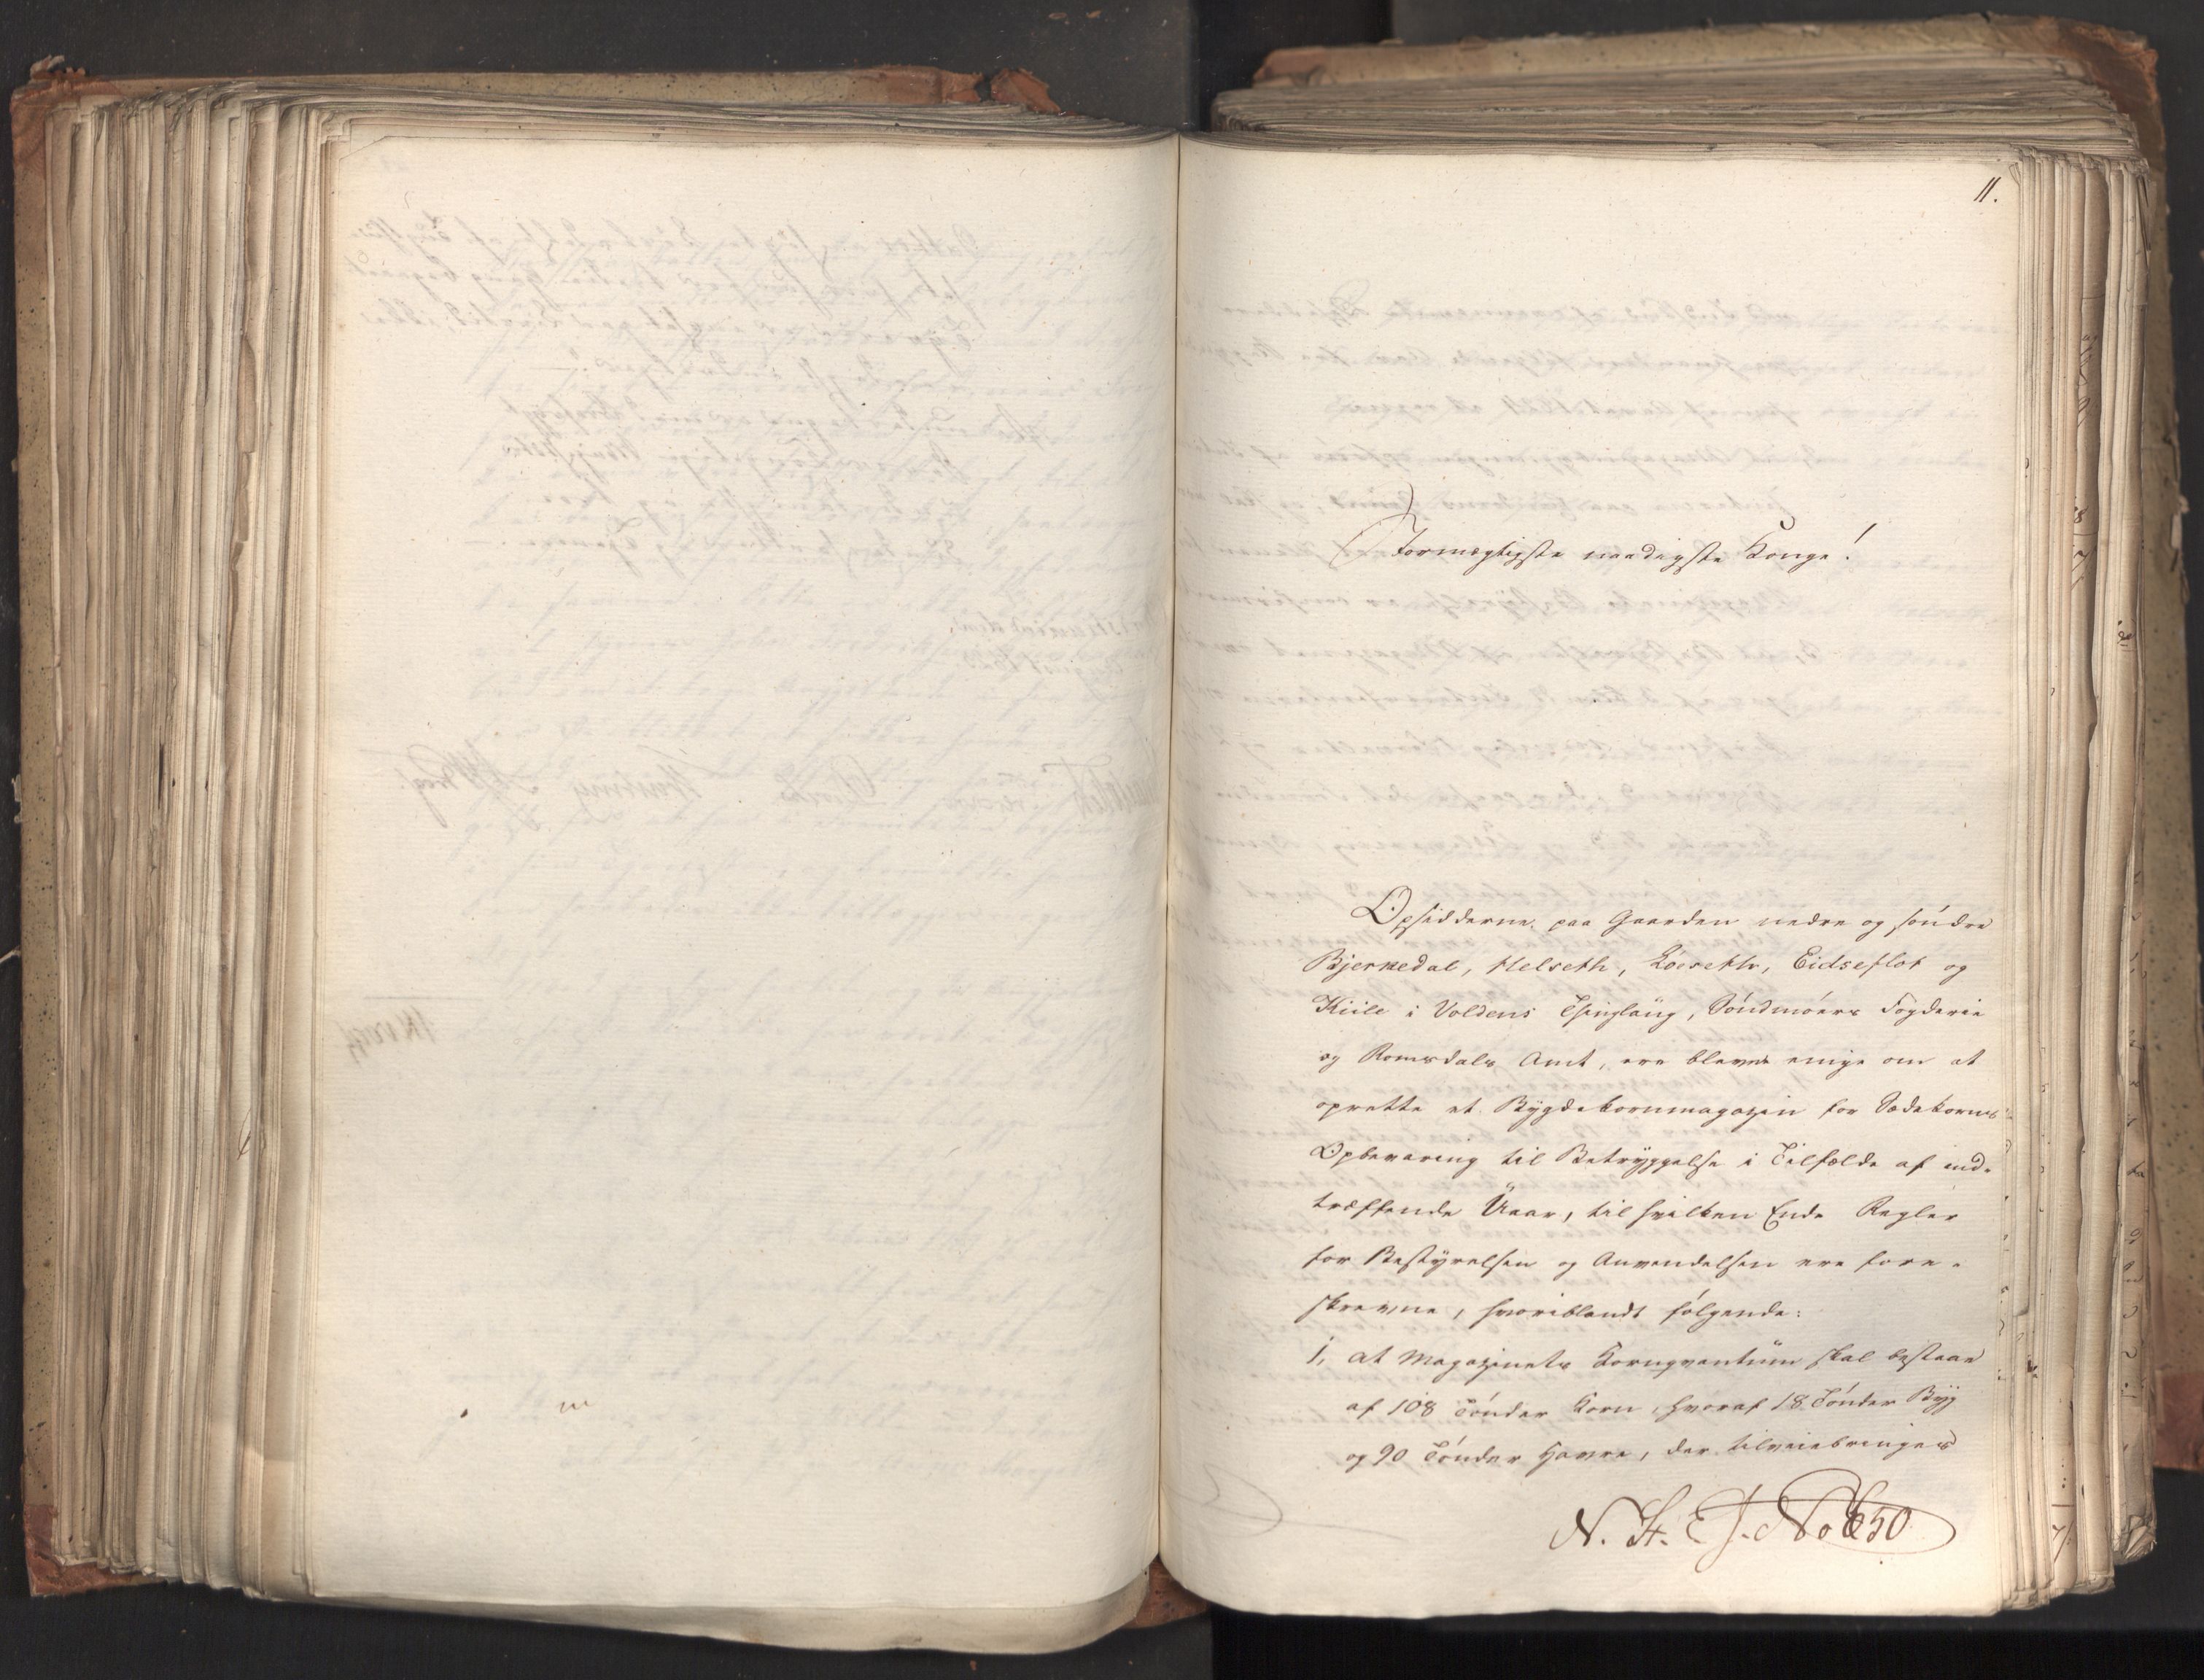 11.
Stormægtigste naadigste Konge!
Opsidderne paa Gaarden nedre og søndre
Bjerkedal, Helseth, Løvseth, Eidseflot og
Kiile i Voldens Thinglaug, Søndmøers Fogderie
og Romsdals Amt, ere blevne enige om at
oprette et Bygdekornmagazin for Sædekorns
Opbevaring til Betryggelse i Tilfælde af ind-
træffende Uaar, til hvilken Ende Regler
for Bestyrelsen og Anvendelsen ere fore-
skrevne, hvoriblandt følgende:
1, at Magazinets Kornqvantum skal bestaae
af 108 Tønder Korn, hvoraf 18 Tønder Byg
og 90 Tønder Havre, der tilveiebringes
N. St. E. J. No 650